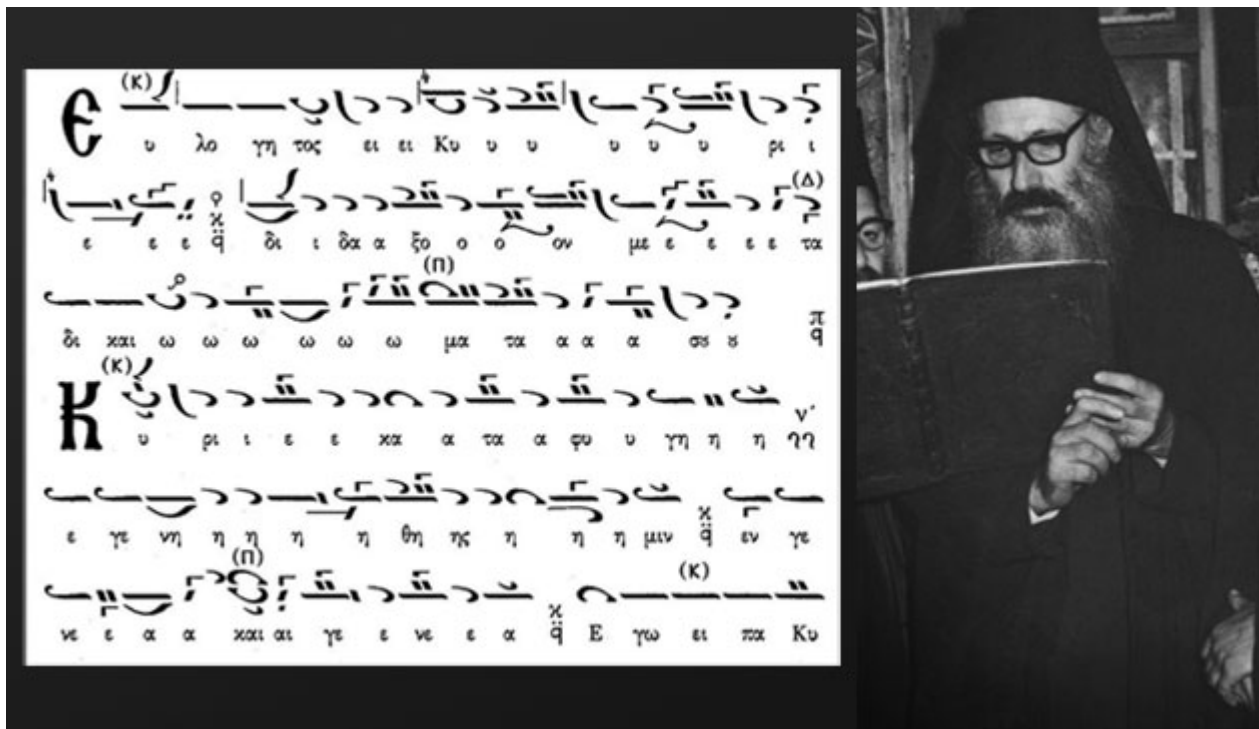 (Κ)
Ευ λο γη τος ει ει Κυ υ υ υ υ υ ρι ι
ε ε ε δι ι δα α ξο ο ο ον με ε ε ε ε τα
(Δ)
(Π)
δι και ω ω ω ω ω ω μα τα α α α σȣ ȣ
(Κ)
Κυ ρι ι ε ε κα α τα α φυ υ γη η η ηη
ε γε νη η η η η θη ης η η η μιν εν γε
(Π) (Κ)
νε ε α α και αι γε ε νε ε α Ε γω ει πα Κυ